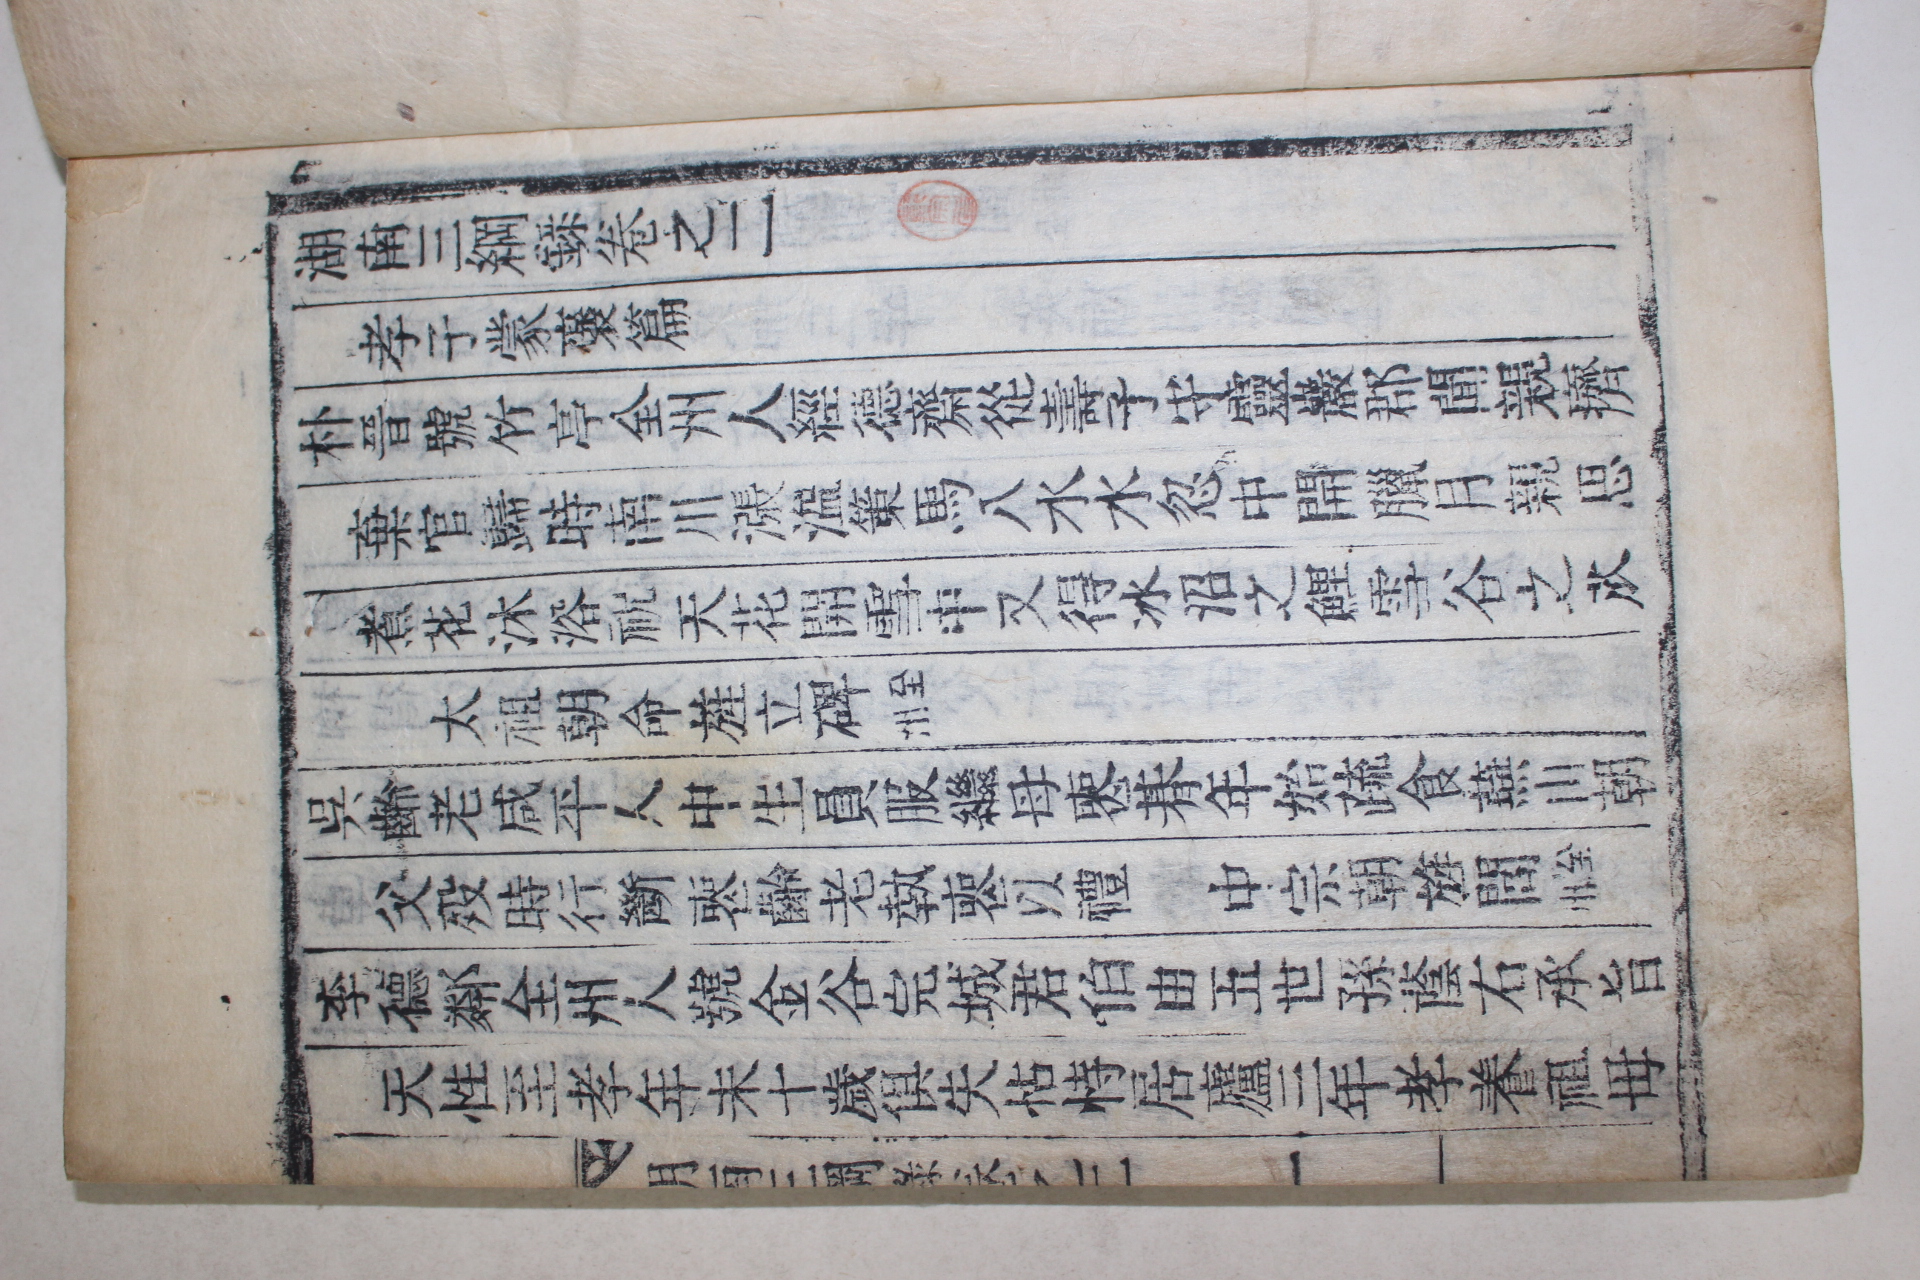 湖南三綱錄卷之二
孝子蒙褒篇
朴晉號竹亭全州人經德齋從壽子守靈巖郡聞親癠
棄官歸時南川漲溢策馬入水水忽中開臘月親思
煮花沐浴祝天花開雪中又得氷沼之鯉雪谷之苽
太祖朝命旌立碑 全州
吳齡老咸平人中生員服繼母喪朞年始疏食蕪川朝
父歿時行斷喪齡老執喪以禮 中宗朝旌閭 全州
李德鄰全州人號金谷完城君伯由五世孫蔭右承旨
天性至孝年未十歲俱失怙恃居廬三年孝養祖母
湖南三綱錄卷之二 一